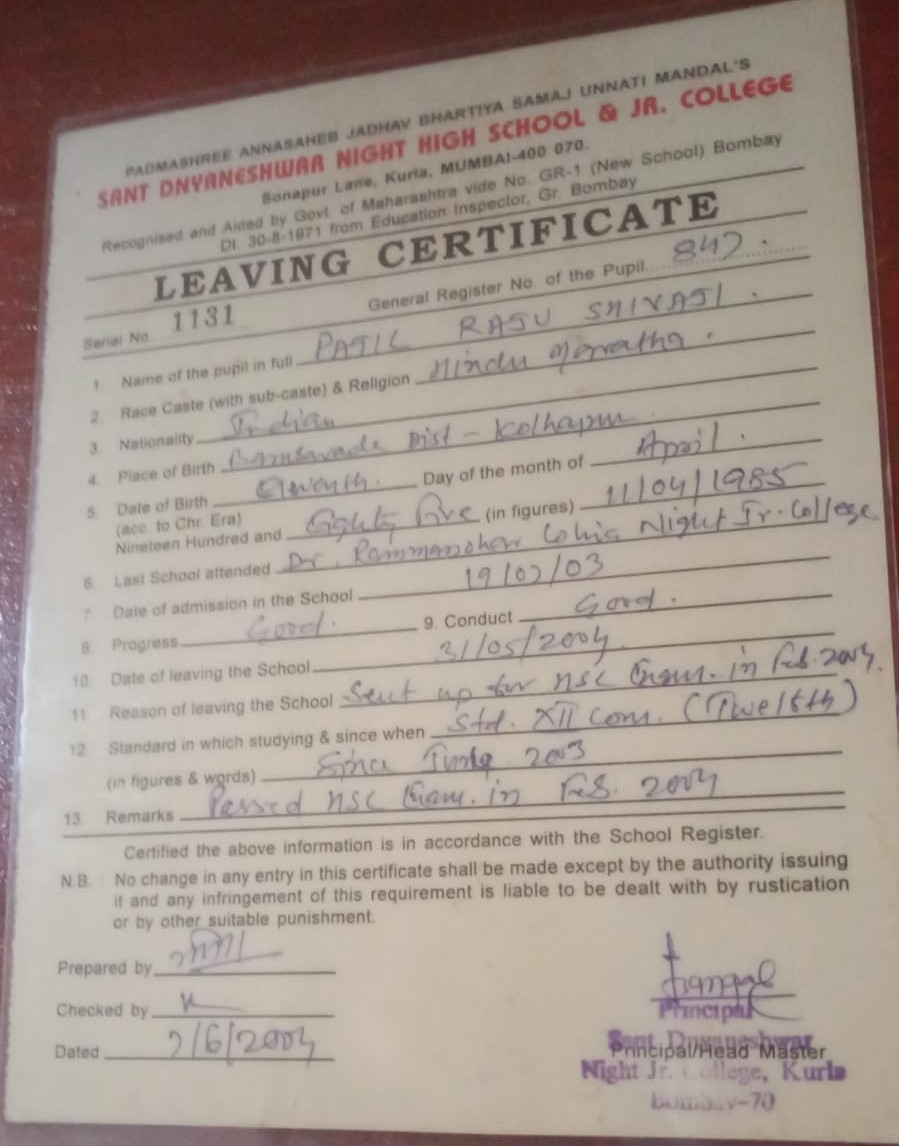 PADMASHREE ANNASAHEB JADHAV BHARTIYA SAMAJ UNNATI MANDAL'S
SANT DNYANESHWAR NIGHT HIGH SCHOOL & JR. COLLEGE
Sonapur Lane, Kurla, MUMBAI-400 070.
Recognised and Aided by Govt. of Maharashtra vide No. GR-1 (New School) Bombay
Dt. 30-8-1971 from Education Inspector, Gr. Bombay
LEAVING CERTIFICATE
Serial No. 1131 General Register No. of the Pupil 847.
1 Name of the pupil in full PATIL RAJU SHIVAJI.
2. Race Caste (with sub-caste) & Religion Hindu Maratha.
3. Nationality Indian
4. Place of Birth Dist - Kolhapur
5. Date of Birth Eleventh. Day of the month of April.
(acc. to Chr. Era)
Nineteen Hundred and Eighty Five (in figures) 11/04/1985
6. Last School attended Dr. Rammanohar Lohia Night Jr. College
7. Date of admission in the School 19/07/03
8. Progress Good. 9. Conduct Good.
10. Date of leaving the School 31/05/2004
11 Reason of leaving the School Sent up for HSC Exam. in Feb. 2004.
12. Standard in which studying & since when Std. XII Com. (Twelfth)
(in figures & words) Since June 2003
13. Remarks Passed HSC Exam. in Feb. 2004
Certified the above information is in accordance with the School Register.
N.B. : No change in any entry in this certificate shall be made except by the authority issuing
it and any infringement of this requirement is liable to be dealt with by rustication
or by other suitable punishment.
Prepared by
Checked by
Principal
Dated 7/6/2004
Sant Dnyaneshwar
Principal/Head Master
Night Jr. College, Kurla
Bombay-70